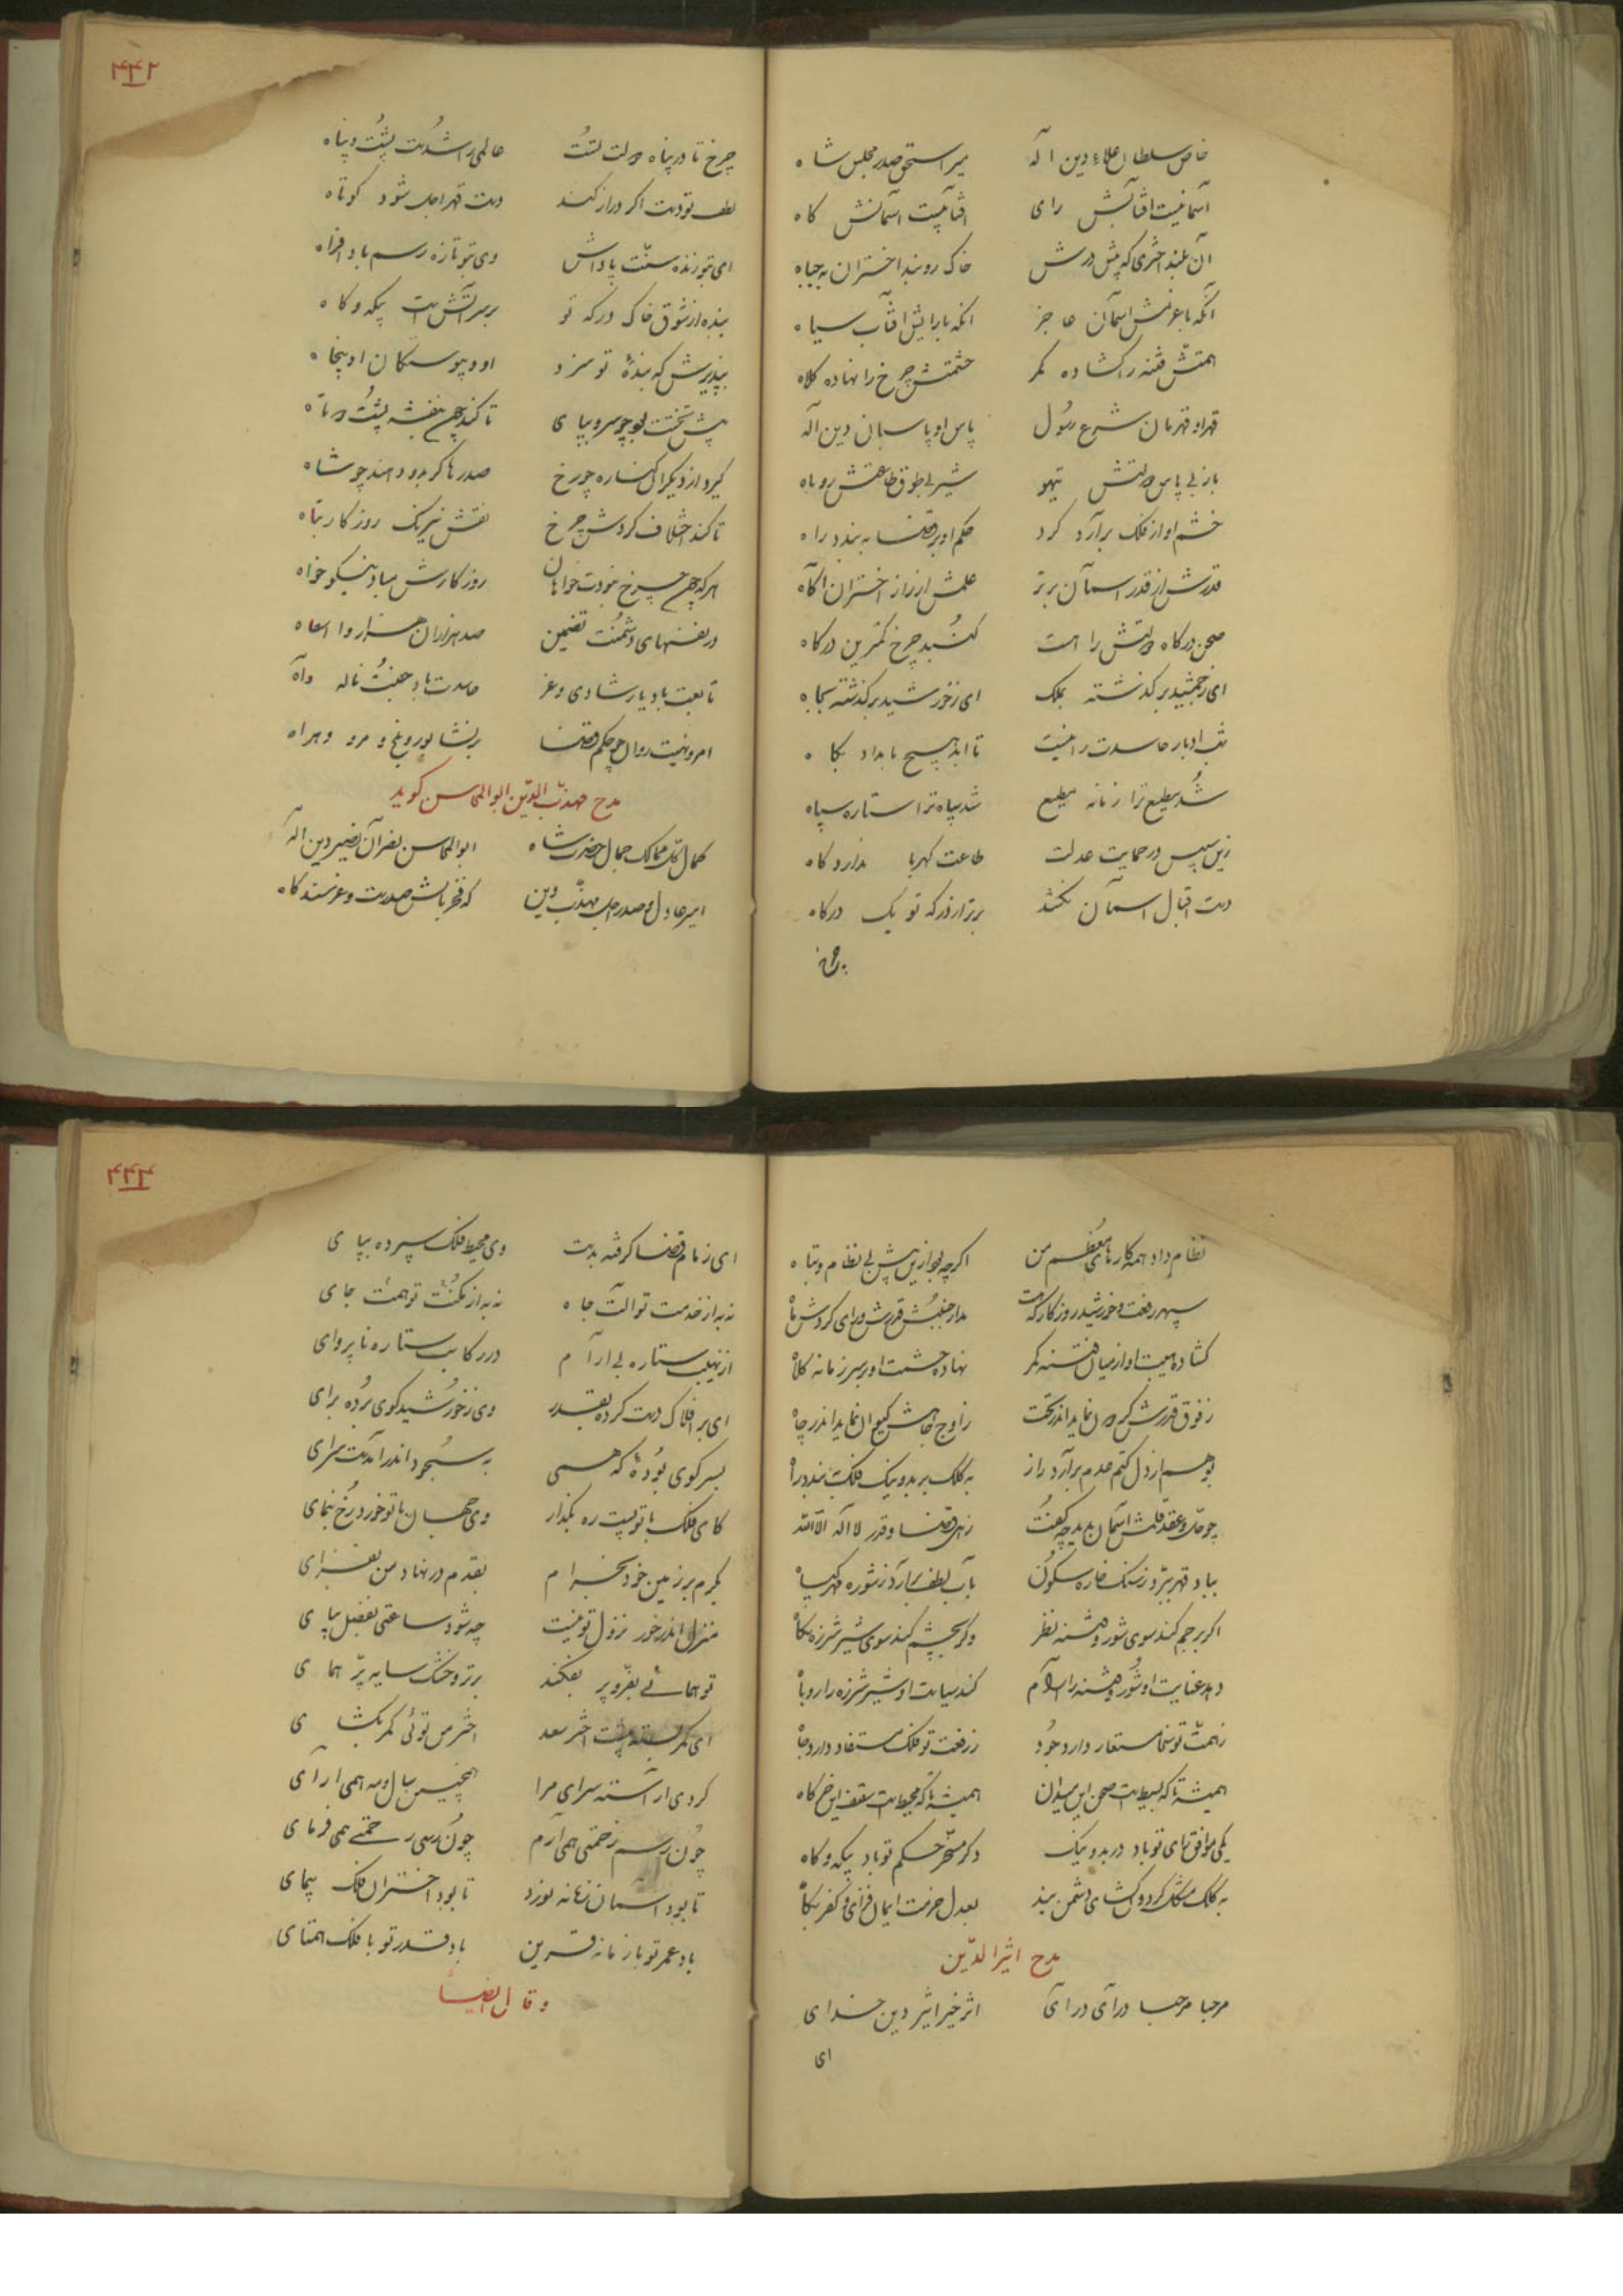 خاص سلطان علاء دین اله    میر اسحق صدر مجلس شاه
آسمانیست آفتابش رای    آفتابیست آسمانش کاه
آن بلند اختری که پیش درش    خاک روبند اختران به جباه
آنکه با عزمش آسمان عاجز    آنکه با رایش آفتاب سیاه
همتش فتنه را کشاده کمر    حشمتش چرخ را نهاده کلاه
قهر او قهرمان شرع رسول    پاس او پاسبان دین اله
باز بی پاس دولتش تیهو    شیر بی طوق طاعتش روباه
خشم او از فلک برآرد کرد    حکم او بر قضا به بندد راه
قدرش از قدر آسمان برتر    علمش از راز اختران آکاه
صحن درکاه دولتش را است    کنبد چرخ کمترین درکاه
ای ز جمشید برکذشته بملک    ای ز خورشید برکذشته بجاه
شب ادبار حاسدت را نیست    تا ابد هیچ بامداد بکاه
شد مطیع ترا زمانه مطیع    شد سپاه ترا ستاره سپاه
زین سپس در حمایت عدلت    طاعت کهربا ندارد کاه
دست اقبال آسمان نکشد    برتر از درکه تو یک درکاه
چرخ
۲۲۱
چرخ تا در پناه دولت تست    عالمی را شدست پشت و پناه
لطف تو دست اکر دراز کند    دست قهر اجل شود کوتاه
ای بتو زنده سنت پاداش    وی بتو تازه رسم باد افراه
بنده از شوق خاک درکه تو    بر سر آتش است بیکه و کاه
بپذیرش که بنده تو سزد    او و پیوستکان او پنجاه
پیش تختت بود چو سرو بپای    تا کند چون بنفشه پشت دوتاه
کیرد از دیکران کناره چو رخ    صدرها کر بدو دهند چو شاه
تا کند اختلاف کردش چرخ    نقش نیرنک روزکار تباه
هر که چون چرخ نبودت خواهان    روزکارش مباد نیکو خواه
در نفسهای دشمنت تضمین    صد هزاران هزار وا اسفاه
تابعت باد یار شادی و عز    حاسدت باد جفت ناله و آه
امر و نهیت روان چو حکم قضا    بر نشابور و بلخ و مرو و هراه
مدح مهذب الدین ابوالمحاسن کوید
کمال کل ممالک جمال حضرت شاه    ابوالمحاسن نصر آن نصیر دین اله
امیر عادل و صدر اجل مهذب دین    که فخر بالش صدرست و عز مسند کاه
نظام داد همه کارهای معظم من    اکر چه بود ازین پیش بی نظام و تباه
سپهر رفعت و خورشید روزکار که هست    مدار جنبش قدرش ورای کردش ماه
کشاده هیبت او از میان فتنه کمر    نهاده حشمت او بر سر زمانه کلاه
ز فوق قدرش کردون نماید اندر تحت    ز اوج جاهش کیوان نماید اندر چاه
بوهم از دل کتم عدم برآرد راز    به کلک بر بد و نیک فلک ببندد راه
چو حل و عقد قلمش آسمان بدید چه کفت    زهی قضا و قدر لا اله الا الله
بباد قهر ببرد ز سنک خاره سکون    بآب لطف برآرد ز شوره مهر کیاه
اکر برحم کند سوی شور و فتنه نظر    وکر بخشم کند سوی شیر شرزه نکاه
دهد عنایت او شور و فتنه را آرام    کند سیاست او شیر شرزه را روباه
ز همت تو سخا مستعار دارد جود    ز رفعت تو فلک مستفاد دارد جاه
همیشه تا که بسیط است صحن این میدان    همیشه تا که محیط است سقف این خرکاه
یکی موافق رای تو باد در بد و نیک    دکر مسخر حکم تو باد بیکه و کاه
به کلک مشکل کردون کشای و دشمن بند    بعدل حرمت ایمان فزای و کفر بکاه
مدح اثیر الدین
مرحبا مرحبا درآی درآی    اثر خیر اثیر دین خدای
ای
۲۲۲
ای زمام قضا کرفته بدست    وی محیط فلک سپرده بپای
نه به از خدمت تو آلت جاه    نه به از مکنت تو همت جای
از نهیبت ستاره بی آرام    در رکابت ستاره ناپروای
ای بر افلاک دست کرده بقدر    وی ز خورشید کوی برده برای
بسر کوی بوده که همی    به سجود اندر آمدت سرای
کای فلک با تو پست ره بکذار    وی جهان با تو خورد رخ بنمای
بکرم بر زمین خود بخرام    بقدم در نهاد من بفزای
منزل اندر خور نزول تو نیست    چه شود ساعتی بفضل بپای
تو همائی بفر و پر بفکند    بر تر و خشک سایه پر همای
ای کمر بسته پیشت اختر سعد    اختر من توئی کمر بکشای
کردی آراسته سرای مرا    همچنین سال و مه همی آرای
چون رسم زحمتی همی آرم    چون رسی رحمتی همی فرمای
تا بود آسمان زمانه نورد    تا بود اختران فلک پیمای
باد عمر تو با زمانه قرین    باد قدر تو با فلک همتای
و قال ایضا